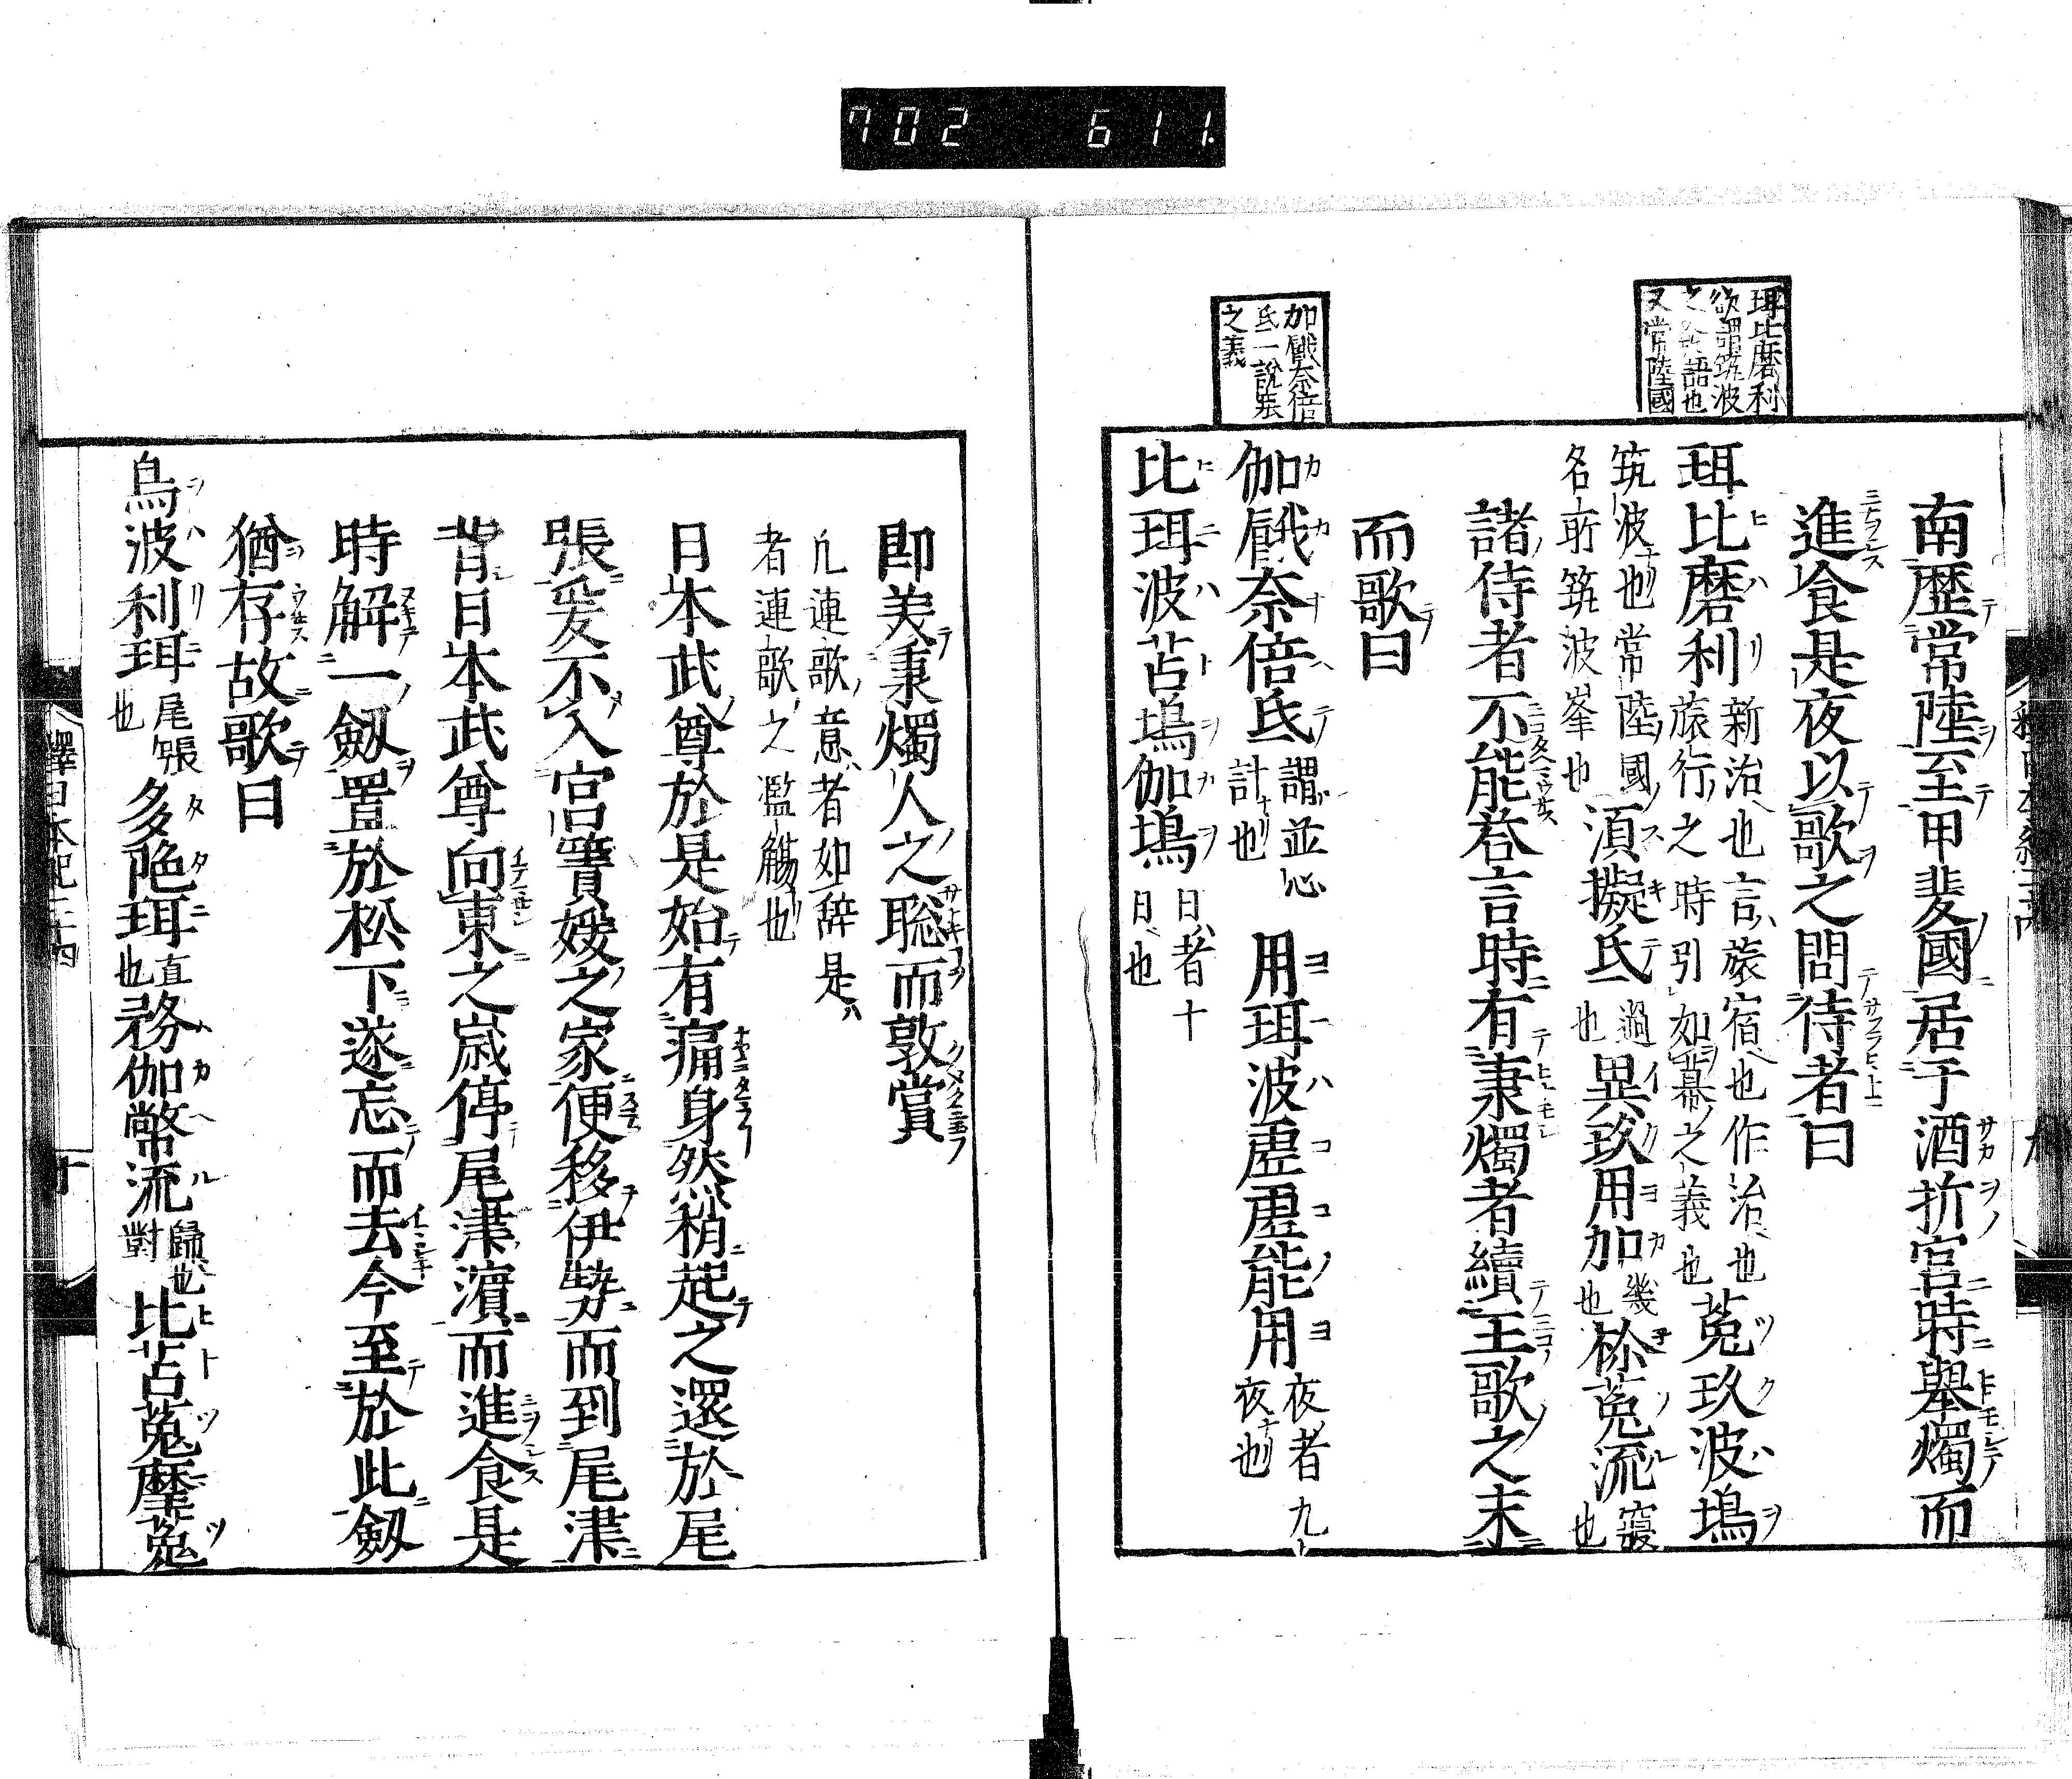 702 611.
珥比磨利
欲謂筑波
之 語也
又常陸國
加餓奈倍
氐一説張
之義
南歷常陸至甲斐國居于酒折宮時舉燭而
進食是夜以歌之問侍者曰
珥比磨利新治也言旅宿也作治也旅行之時引如幕之義也菟玖波塢
筑波也常陸國名所筑波峯也須擬氐過也異玖用加幾也袮菟流寢也
諸侍者不能荅言時有秉燭者續王歌之末
而歌曰
伽餓奈倍氐謂並心計也用珥波虛虛能用夜者九夜也
比珥波苫塢伽塢日者十日也
即美秉燭人之聡而敦賞
凡連歌意者如辞是
者連歌之濫觴也
日本武尊於是始有痛身然稍起之還於尾
張爰不入宮簀媛之家便移伊勢而到尾津
昔日本武尊向東之歲停尾津濱而進食是
時解一劔置於松下遂忘而去今至於此劔
猶存故歌曰
烏波利珥尾張也多陁珥直也務伽幣流歸也對比苫菟麼菟
釋日本紀二十四
十